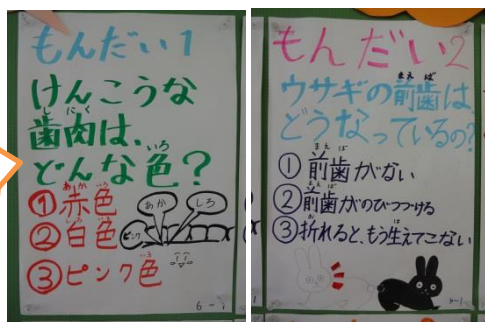 もんだい1
けんこうな
歯肉は、
どんな色?
①赤色
②白色
③ピンク色
あか
しろ
ピンク
6-1
もんだい2
ウサギの前歯は
どうなっているの?
①前歯がない
②前歯がのびつづける
③折れると、もう生えてこない
6-1